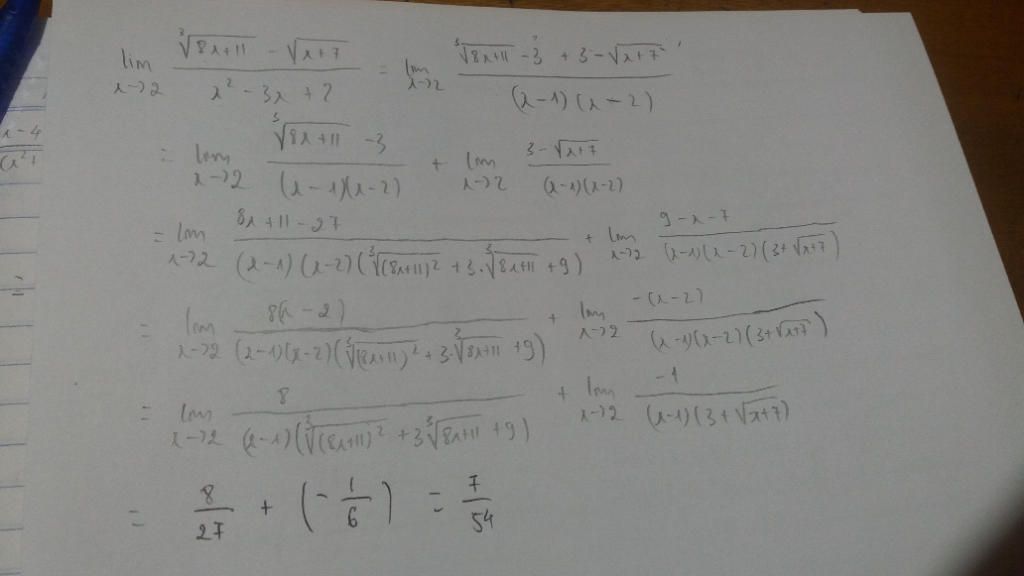 lim x→2 (∛(8x+11) - √(x+7)) / (x² - 3x + 2) = lim x→2 (∛(8x+11) - 3 + 3 - √(x+7)) / ((x-1)(x-2))
= lim x→2 (∛(8x+11) - 3) / ((x-1)(x-2)) + lim x→2 (3 - √(x+7)) / ((x-1)(x-2))
= lim x→2 (8x+11-27) / ((x-1)(x-2)(∛((8x+11)²) + 3.∛(8x+11) + 9)) + lim x→2 (9-x-7) / ((x-1)(x-2)(3+√(x+7)))
= lim x→2 8(x-2) / ((x-1)(x-2)(∛((8x+11)²) + 3.∛(8x+11) + 9)) + lim x→2 -(x-2) / ((x-1)(x-2)(3+√(x+7)))
= lim x→2 8 / ((x-1)(∛((8x+11)²) + 3∛(8x+11) + 9)) + lim x→2 -1 / ((x-1)(3+√(x+7)))
= 8/27 + (-1/6) = 7/54
x-4
(x²+
=